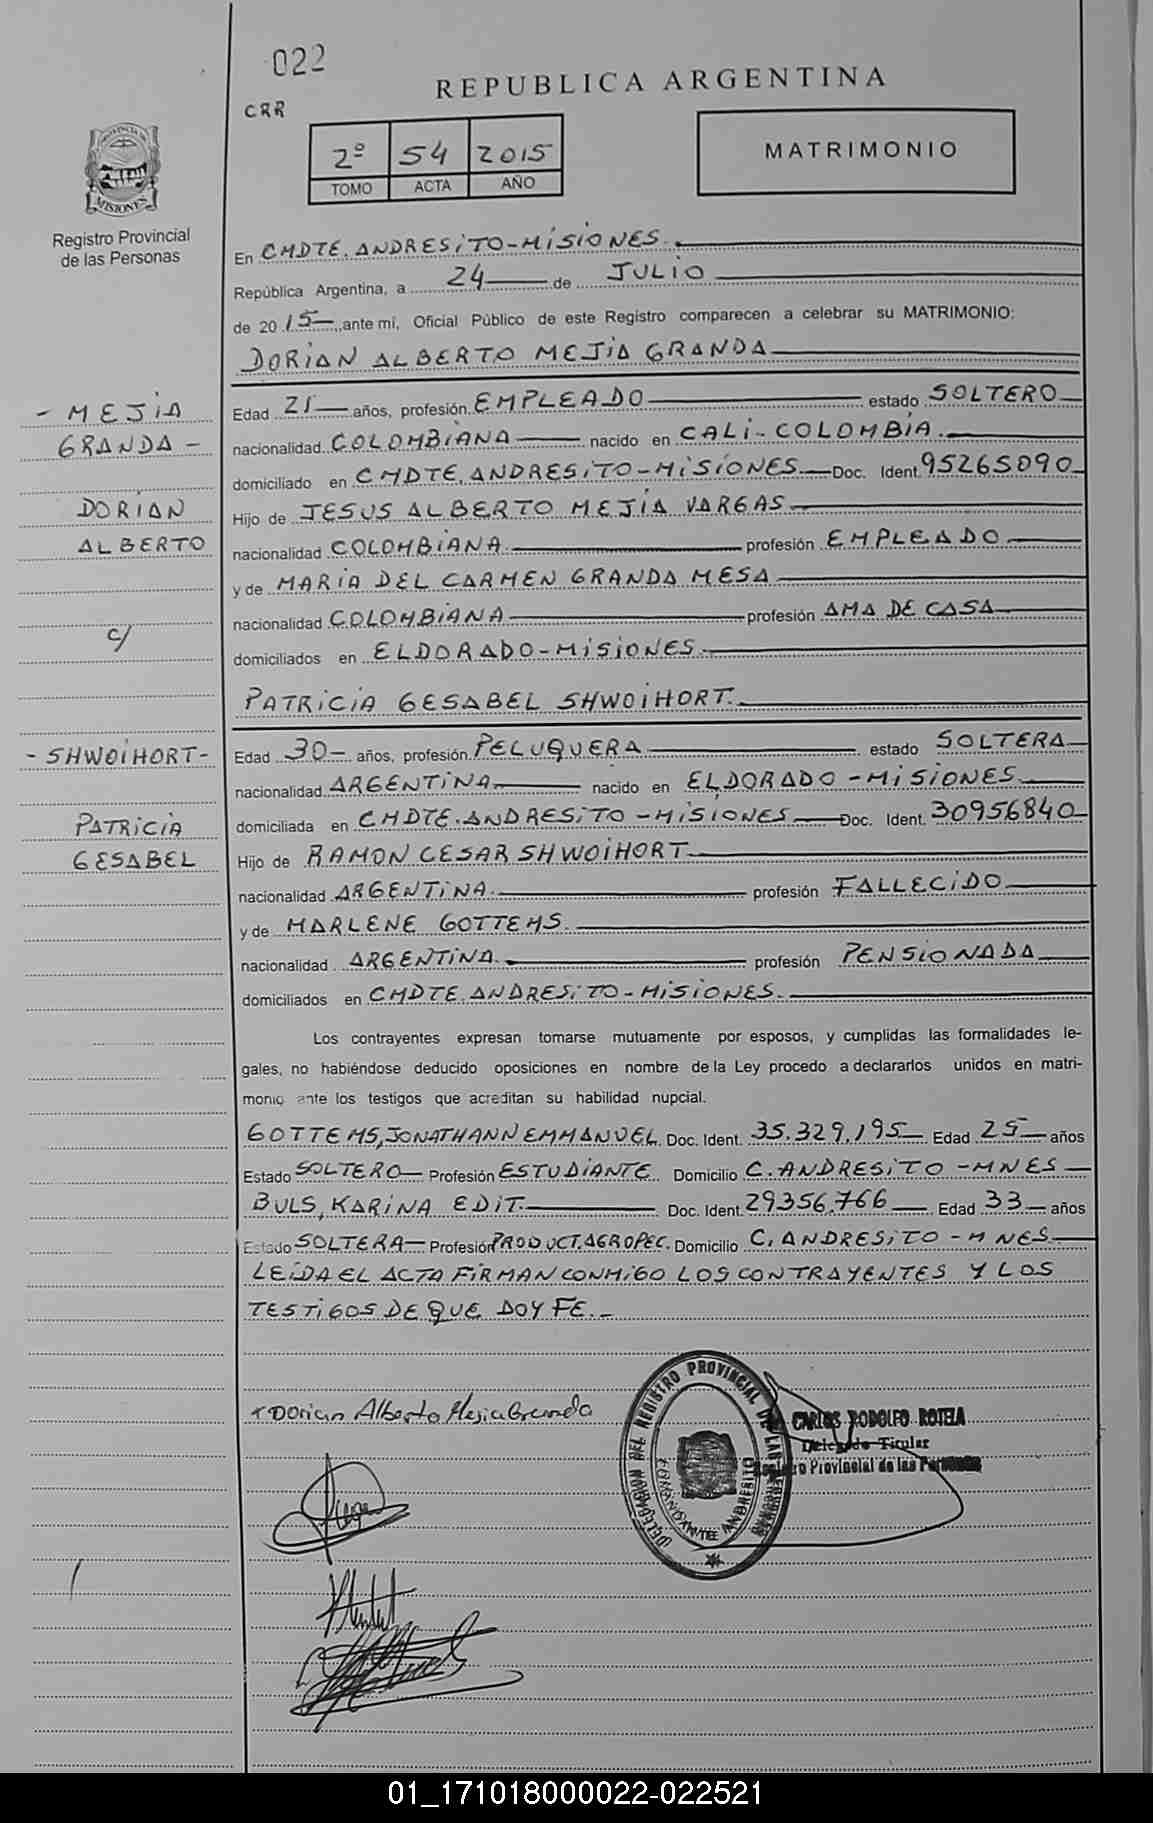 022
REPUBLICA ARGENTINA
CRR
2º 54 2015
TOMO ACTA AÑO
MATRIMONIO
PROVINCIA DE
MISIONES
Registro Provincial
de las Personas
En CMDTE. ANDRESITO-MISIONES.
República Argentina, a 24 de JULIO
de 2015, ante mí, Oficial Público de este Registro comparecen a celebrar su MATRIMONIO:
DORIAN ALBERTO MEJIA GRANDA
- MEJIA
GRANDA -
DORIAN
ALBERTO
c/
- SHWOIHORT -
PATRICIA
GESABEL
Edad 21 años, profesión EMPLEADO estado SOLTERO
nacionalidad COLOMBIANA nacido en CALI-COLOMBIA.
domiciliado en CMDTE. ANDRESITO-MISIONES. Doc. Ident. 95265090
Hijo de JESUS ALBERTO MEJIA VARGAS
nacionalidad COLOMBIANA. profesión EMPLEADO
y de MARIA DEL CARMEN GRANDA MESA
nacionalidad COLOMBIANA profesión AMA DE CASA
domiciliados en ELDORADO-MISIONES.
PATRICIA GESABEL SHWOIHORT.
Edad 30 años, profesión PELUQUERA estado SOLTERA
nacionalidad ARGENTINA. nacido en ELDORADO-MISIONES
domiciliada en CMDTE. ANDRESITO-MISIONES Doc. Ident. 30956840
Hijo de RAMON CESAR SHWOIHORT
nacionalidad ARGENTINA. profesión FALLECIDO
y de MARLENE GOTTEMS.
nacionalidad ARGENTINA. profesión PENSIONADA
domiciliados en CMDTE. ANDRESITO-MISIONES.
Los contrayentes expresan tomarse mutuamente por esposos, y cumplidas las formalidades le-
gales, no habiéndose deducido oposiciones en nombre de la Ley procedo a declararlos unidos en matri-
monio ante los testigos que acreditan su habilidad nupcial.
GOTTEMS, JONATHANN EMMANUEL. Doc. Ident. 35.329.195 Edad 25 años
Estado SOLTERO Profesión ESTUDIANTE. Domicilio C. ANDRESITO-MNES
BULS, KARINA EDIT. Doc. Ident. 29356.766 Edad 33 años
Estado SOLTERA Profesión PRODUCT. AGROPEC. Domicilio C. ANDRESITO-MNES.
LEIDA EL ACTA FIRMAN CONMIGO LOS CONTRAYENTES Y LOS
TESTIGOS DE QUE DOY FE.-
+ Dorian Alberto Mejia Granda
DELEGACION DEL REGISTRO PROVINCIAL DE LAS PERSONAS
COMANDANTE ANDRESITO
CARLOS RODOLFO ROTELA
Delegado Titular
Registro Provincial de las Personas
01_171018000022-022521